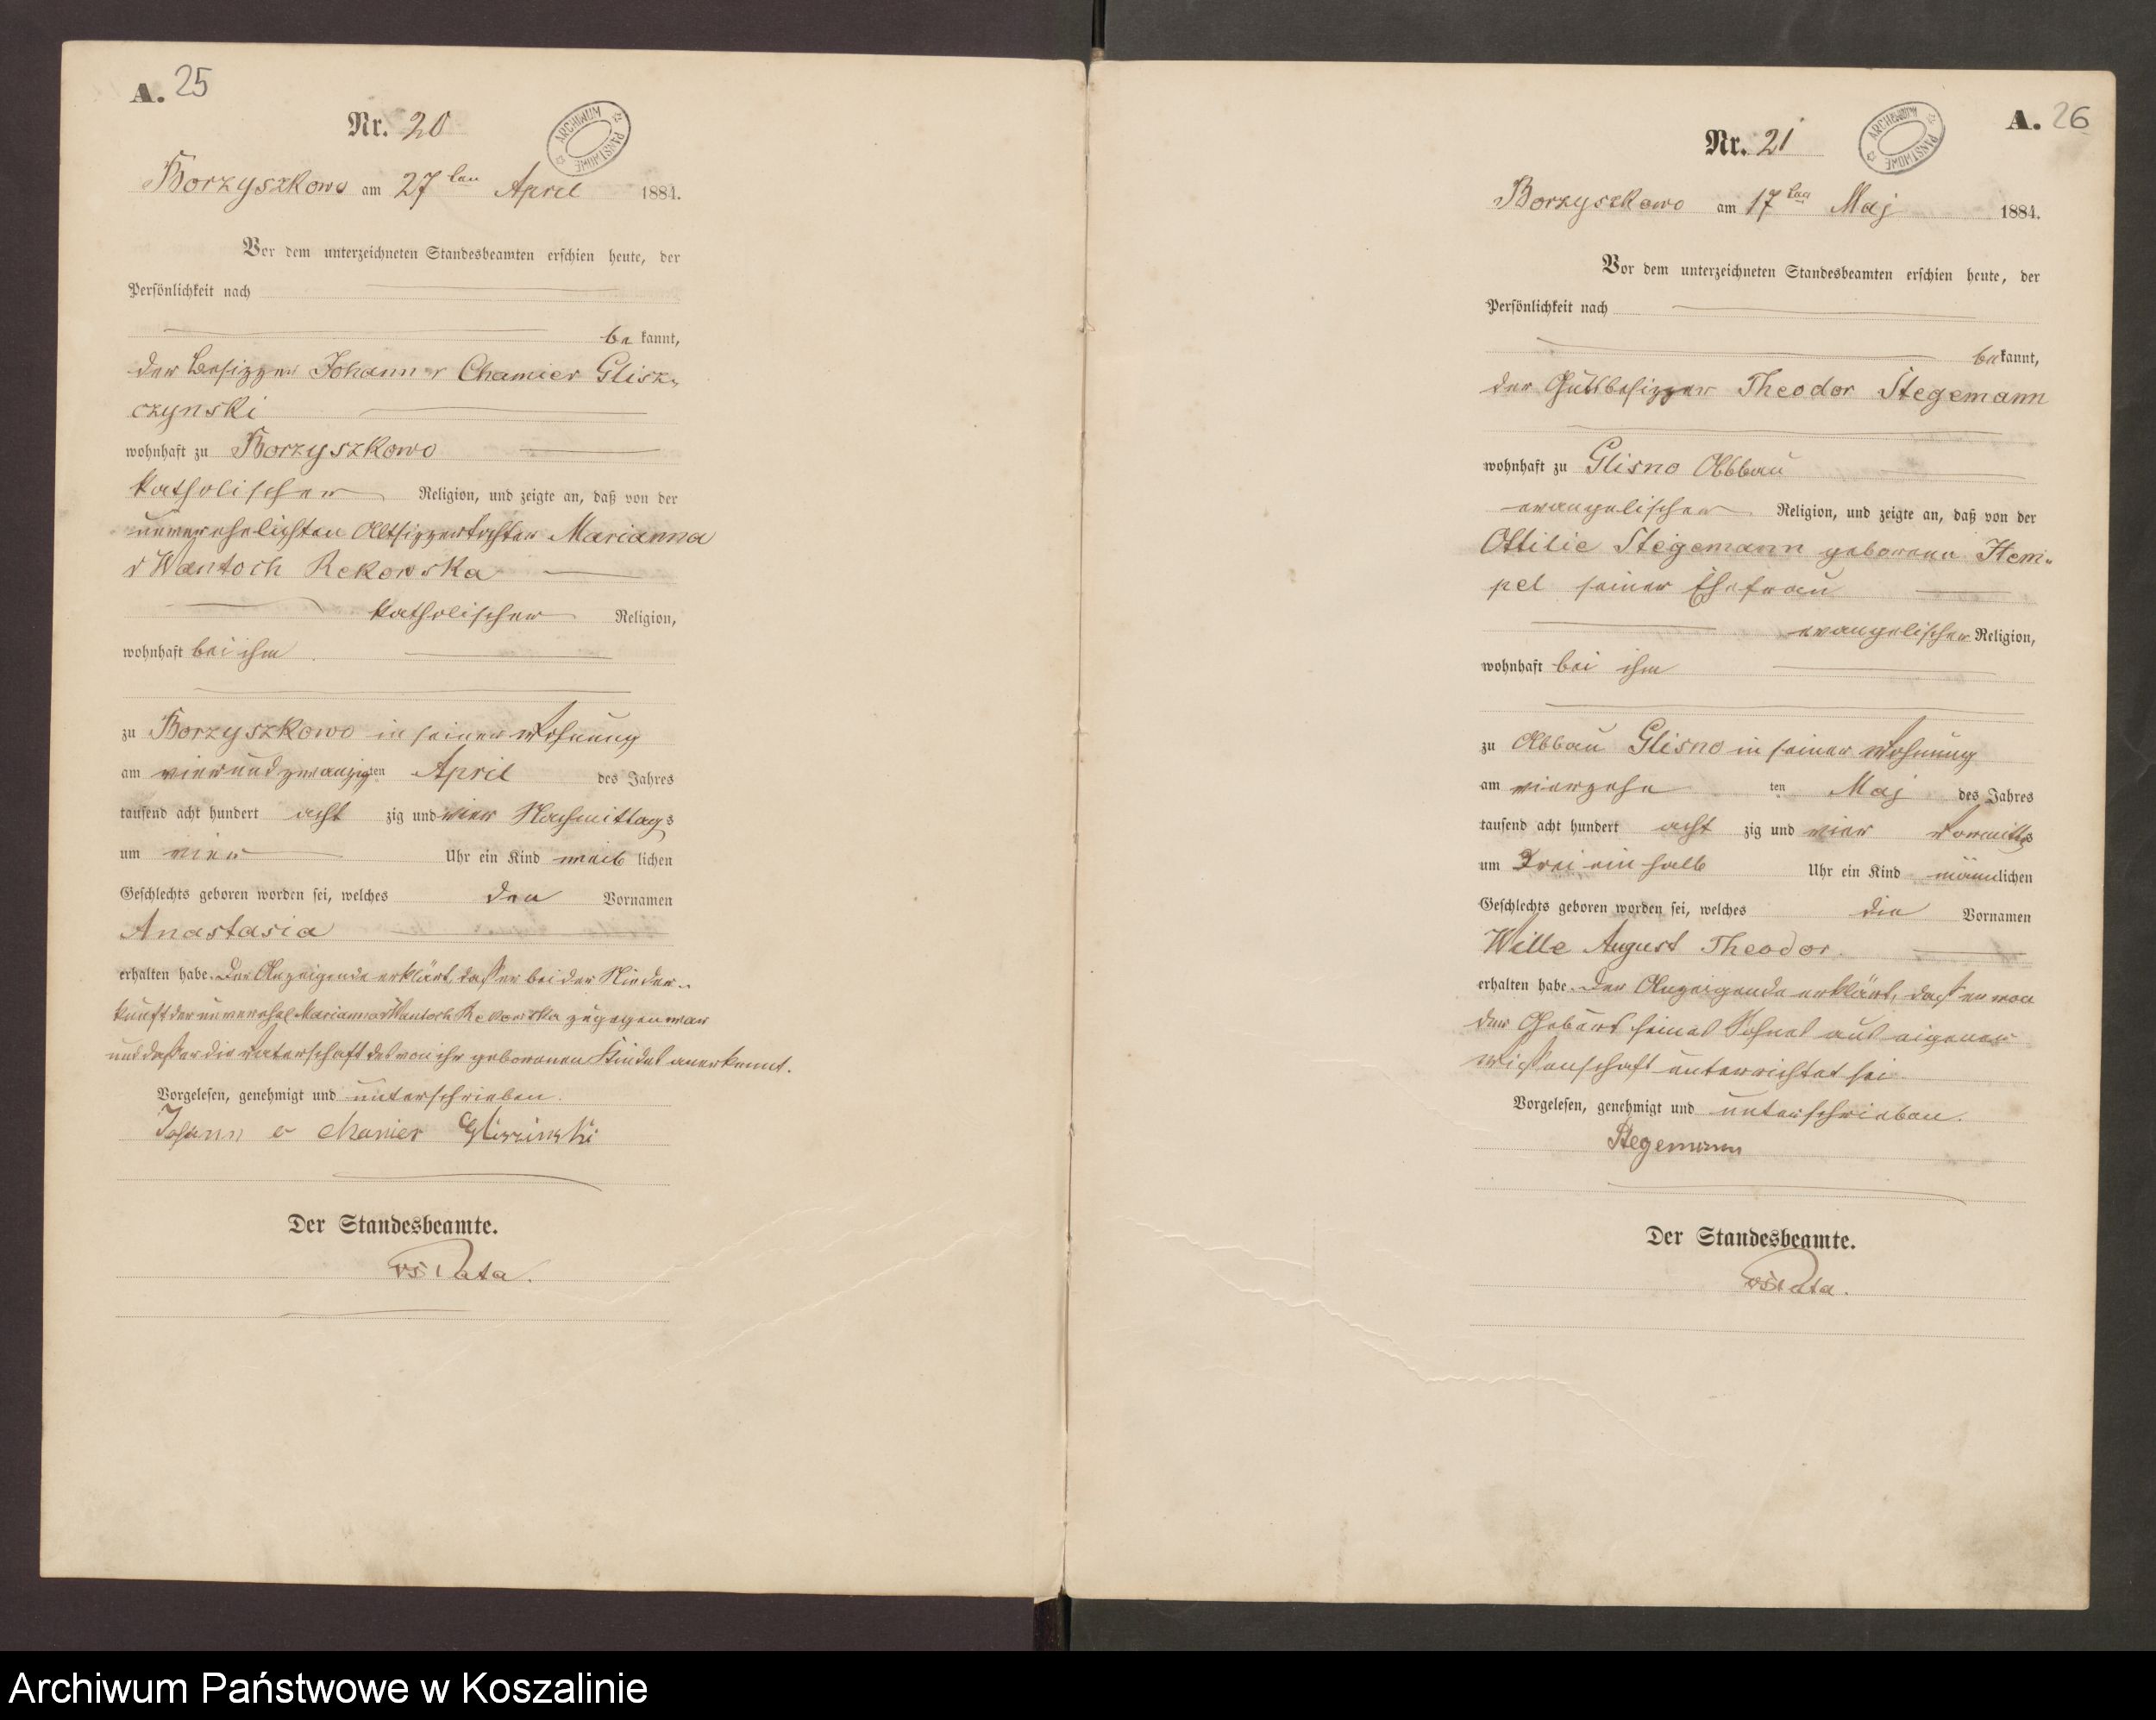 A. 25
Nr. 20
ARCHIWUM PAŃSTWOWE
Borzyszkowo am 27ten April 1884.
Vor dem unterzeichneten Standesbeamten erschien heute, der
Persönlichkeit nach
be kannt,
der Besitzer Johann v Chamier Glisz-
czynski
wohnhaft zu Borzyszkowo
katholischer Religion, und zeigte an, daß von der
unverehelichten Altsitzertochter Marianna
v Wantoch Rekowska
katholischer Religion,
wohnhaft bei ihm
zu Borzyszkowo in seiner Wohnung
am vierundzwanzigten April des Jahres
tausend acht hundert acht zig und vier Nachmittags
um vier Uhr ein Kind weib lichen
Geschlechts geboren worden sei, welches den Vornamen
Anastasia
erhalten habe. Der Anzeigende erklärt, daß er bei der Nieder-
kunft der unverehel Marianna v Wantoch Rekowska zugegen war
und daß er die Vaterschaft des von ihr geborenen Kindes anerkennt.
Vorgelesen, genehmigt und unterschrieben.
Johann v Chamier Gliszinski
Der Standesbeamte.
A. 26
Nr. 21
ARCHIWUM PAŃSTWOWE
Borzyszkowo am 17ten Maj 1884.
Vor dem unterzeichneten Standesbeamten erschien heute, der
Persönlichkeit nach
be kannt,
der Gutsbesitzer Theodor Stegemann
wohnhaft zu Glisno Abbau
evangelischer Religion, und zeigte an, daß von der
Ottilie Stegemann geborenen Hem-
pel seiner Ehefrau
evangelischer Religion,
wohnhaft bei ihm
zu Abbau Glisno in seiner Wohnung
am vierzehn ten Maj des Jahres
tausend acht hundert acht zig und vier Vormittgs
um drei ein halb Uhr ein Kind männlichen
Geschlechts geboren worden sei, welches die Vornamen
Wille August Theodor.
erhalten habe. Der Anzeigende erklärt, daß er von
der Geburt seines Sohnes aus eigener
Wissenschaft unterrichtet sei
Vorgelesen, genehmigt und unterschrieben.
Stegemann
Der Standesbeamte.
Archiwum Państwowe w Koszalinie